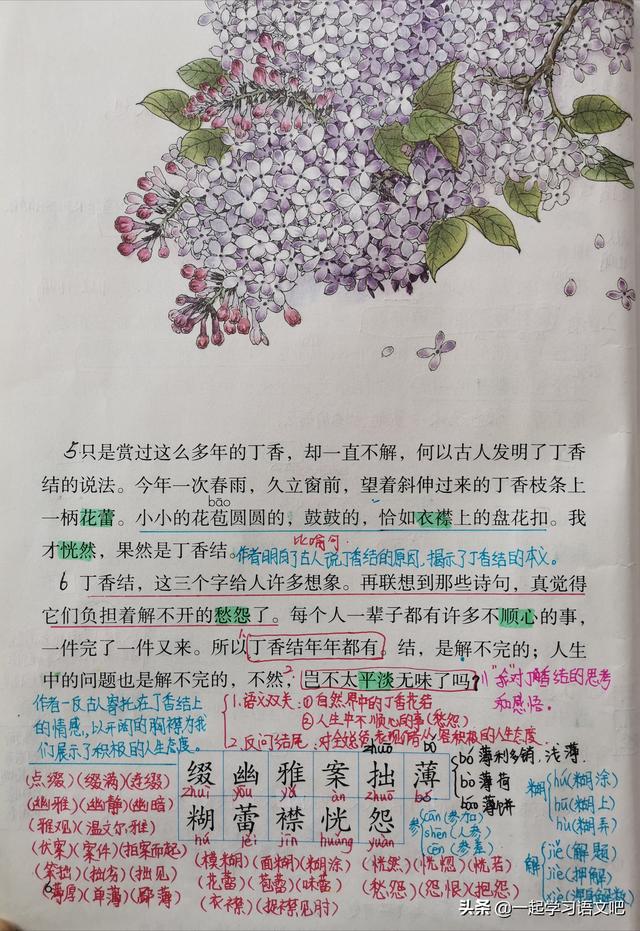 5 只是赏过这么多年的丁香，却一直不解，何以古人发明了丁香
结的说法。今年一次春雨，久立窗前，望着斜伸过来的丁香枝条上
bāo
一柄花蕾。小小的花苞圆圆的，鼓鼓的，恰如衣襟上的盘花扣。我
比喻句
才恍然，果然是丁香结。
作者明白了古人说丁香结的原因，揭示了丁香结的本义。
6 丁香结，这三个字给人许多想象。再联想到那些诗句，真觉得
它们负担着解不开的愁怨了。每个人一辈子都有许多不顺心的事，
一件完了一件又来。所以丁香结年年都有。结，是解不完的；人生
中的问题也是解不完的，不然，岂不太平淡无味了吗？
"我"对丁香结的思考
和感悟。
作者一反古人寄托在丁香结上
的情感，以开阔的胸襟为我
们展示了积极的人生态度。
1.语义双关：①自然界中的丁香花结
②人生中不顺心的事(愁怨)
2.反问结尾：
缀 幽 雅 案 拙 薄
zhuì yōu yǎ àn zhuō bó
糊 蕾 襟 恍 怨
hú lěi jīn huǎng yuàn
(点缀)(缀满)(连缀)
(幽雅)(幽静)(幽暗)
(雅观)(温文尔雅)
(伏案)(案件)(拍案而起)
(笨拙)(拙劣)(拙见)
(薄厚)(单薄)
(模糊)(面糊)(糊涂)
(花蕾)(苞蕾)(味蕾)
(衣襟)(捉襟见肘)
(恍然)(恍惚)(恍若)
(愁怨)(怨恨)(抱怨)
bó 薄利多销，浅薄
bò 薄荷
báo 薄饼
参 cān (参加)
shēn (人参)
cēn (参差)
糊 hú (糊涂)
hū (糊上)
hù (糊弄)
解 jiě (解题)
jiè (押解)
xiè (浑身解数)
6
头条 @一起学习语文吧